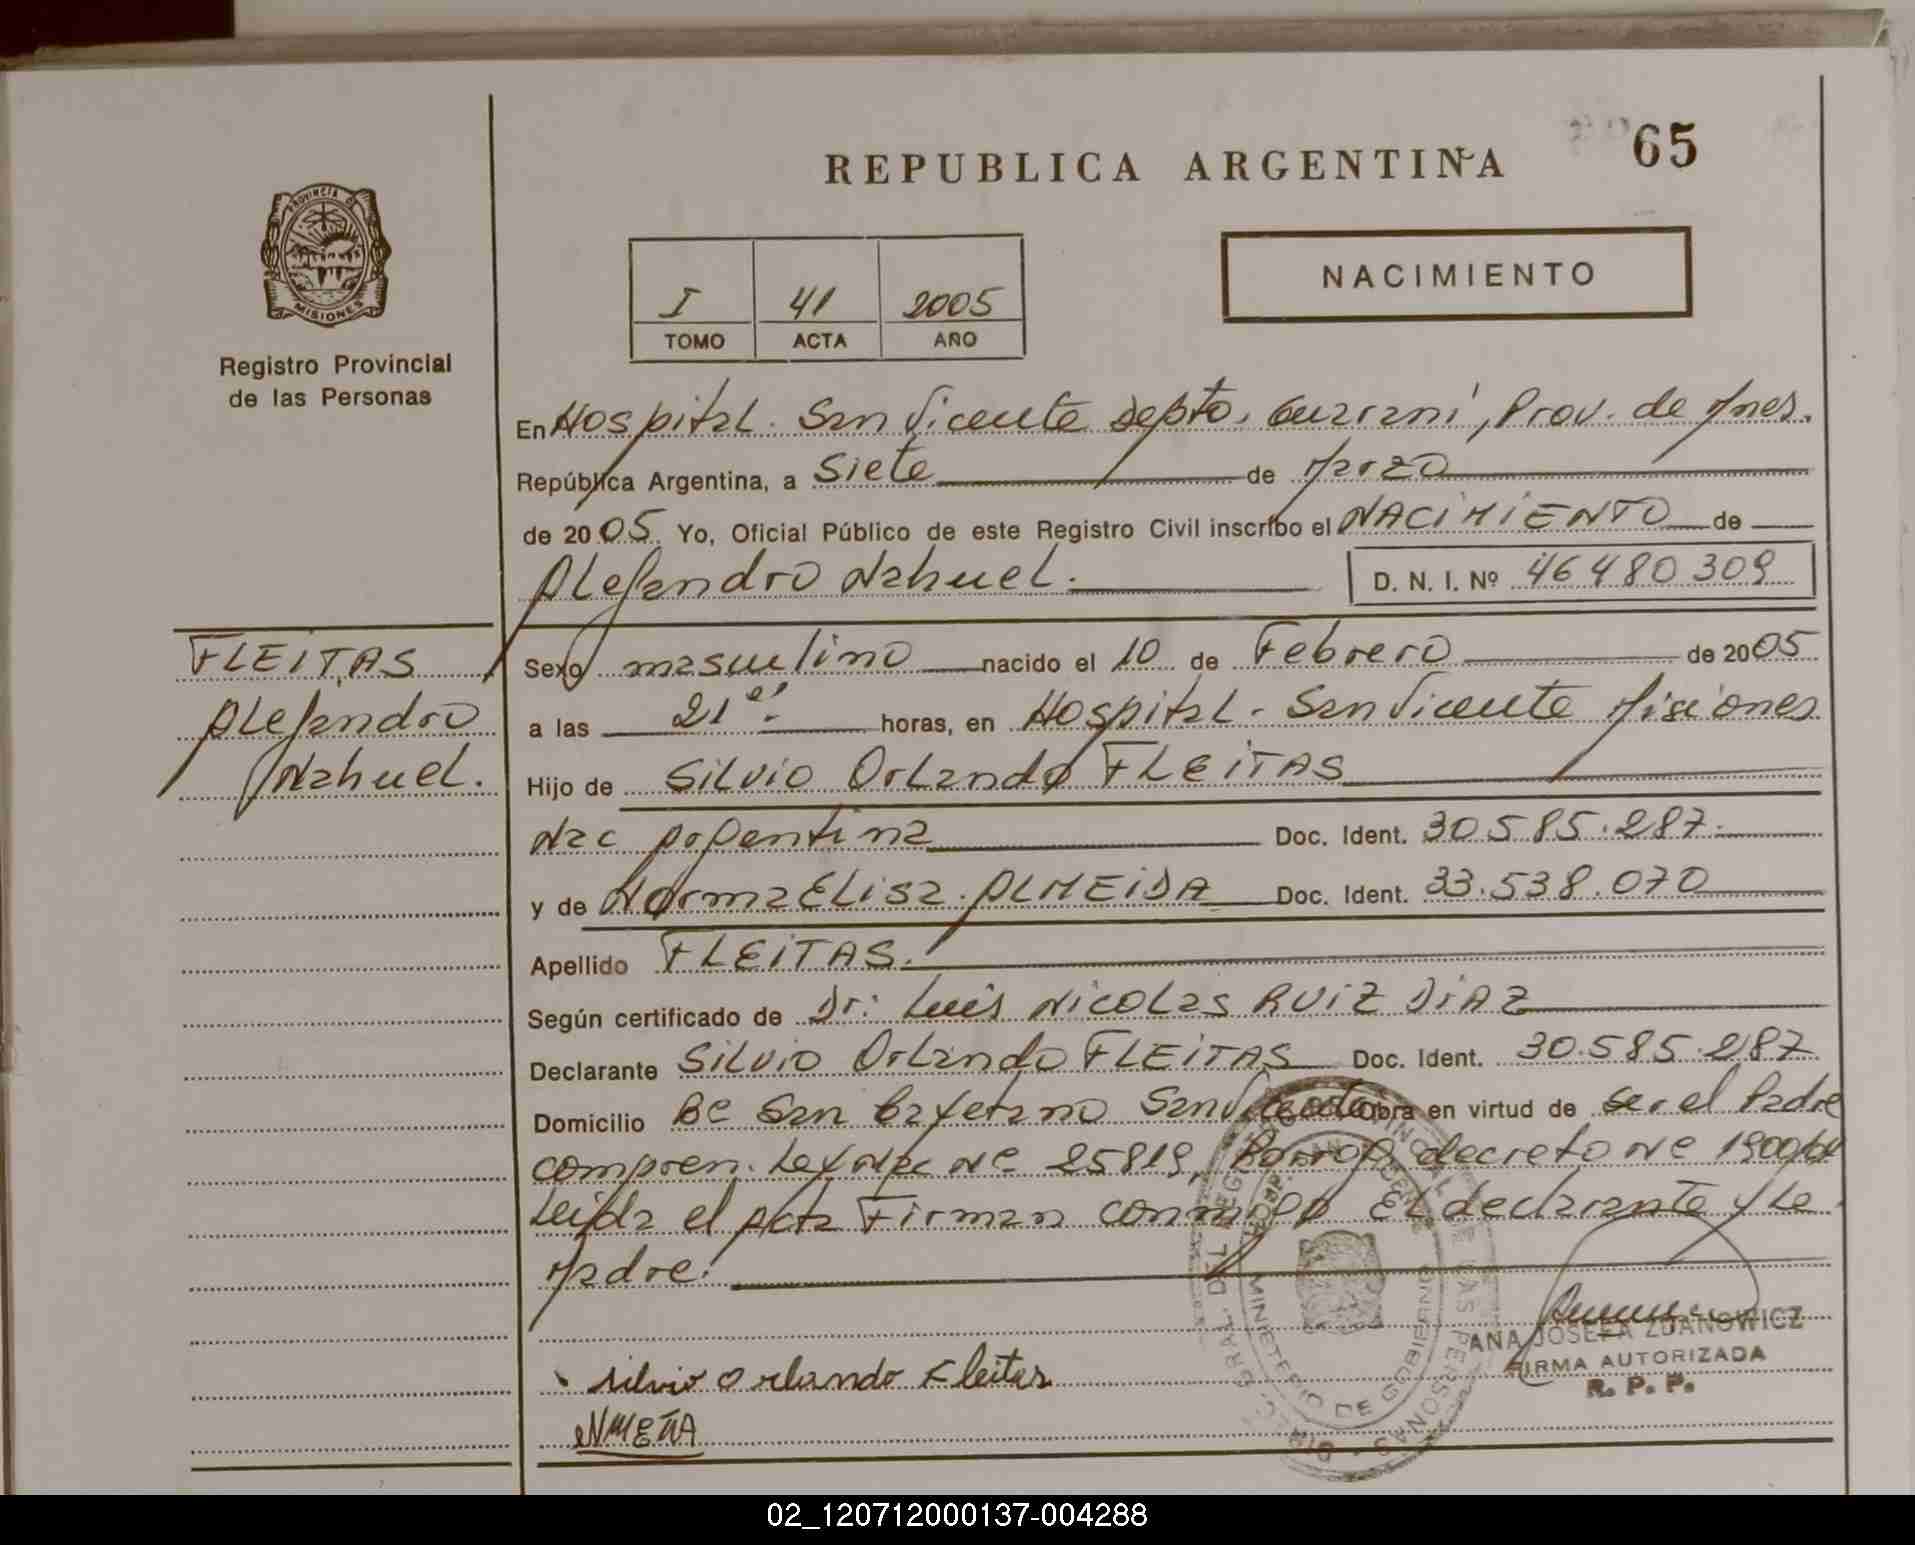 REPUBLICA ARGENTINA
65
PROVINCIA DE
MISIONES
Registro Provincial
de las Personas
I 41 2005
TOMO ACTA AÑO
NACIMIENTO
En Hospital. San Vicente Depto. Guarani, Prov. de Mnes.
República Argentina, a Siete de Marzo
de 2005 Yo, Oficial Público de este Registro Civil inscribo el NACIMIENTO de
Alejandro Nahuel.
D. N. I. Nº 46480309
FLEITAS
Alejandro
Nahuel.
Sexo masculino nacido el 10 de Febrero de 2005
a las 21 horas, en Hospital. San Vicente Misiones
Hijo de Silvio Orlando FLEITAS
Nac Argentina Doc. Ident. 30.585.287.
y de Norma Elisa. ALMEIDA Doc. Ident. 33.538.070
Apellido FLEITAS.
Según certificado de Dr. Luis Nicolas RUIZ DIAZ
Declarante Silvio Orlando FLEITAS Doc. Ident. 30.585.287
Domicilio Bº San Cayetano San Vicente Obra en virtud de ser el Padre
compren. Ley Nac Nº 25819, decreto Nº 1900/04
Leida el Acta Firman conmigo El declarante y La
Madre.
silvio Orlando Fleitas
ANA JOSEFA ZDANOWICZ
FIRMA AUTORIZADA
R. P. P.
MINISTERIO DE GOBIERNO
02_120712000137-004288